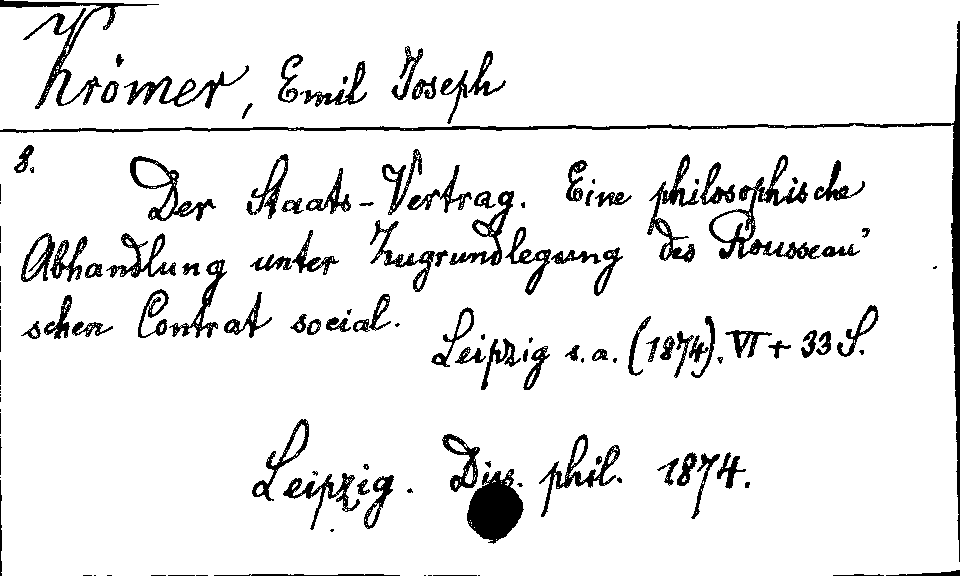 Krömer, Emil Joseph
8.
Der Staats-Vertrag. Eine philosophische
Abhandlung unter Zugrundlegung des Rousseau'
schen Contrat social.
Leipzig s.a. (1874). VI + 33 S.
Leipzig. Diss. phil. 1874.